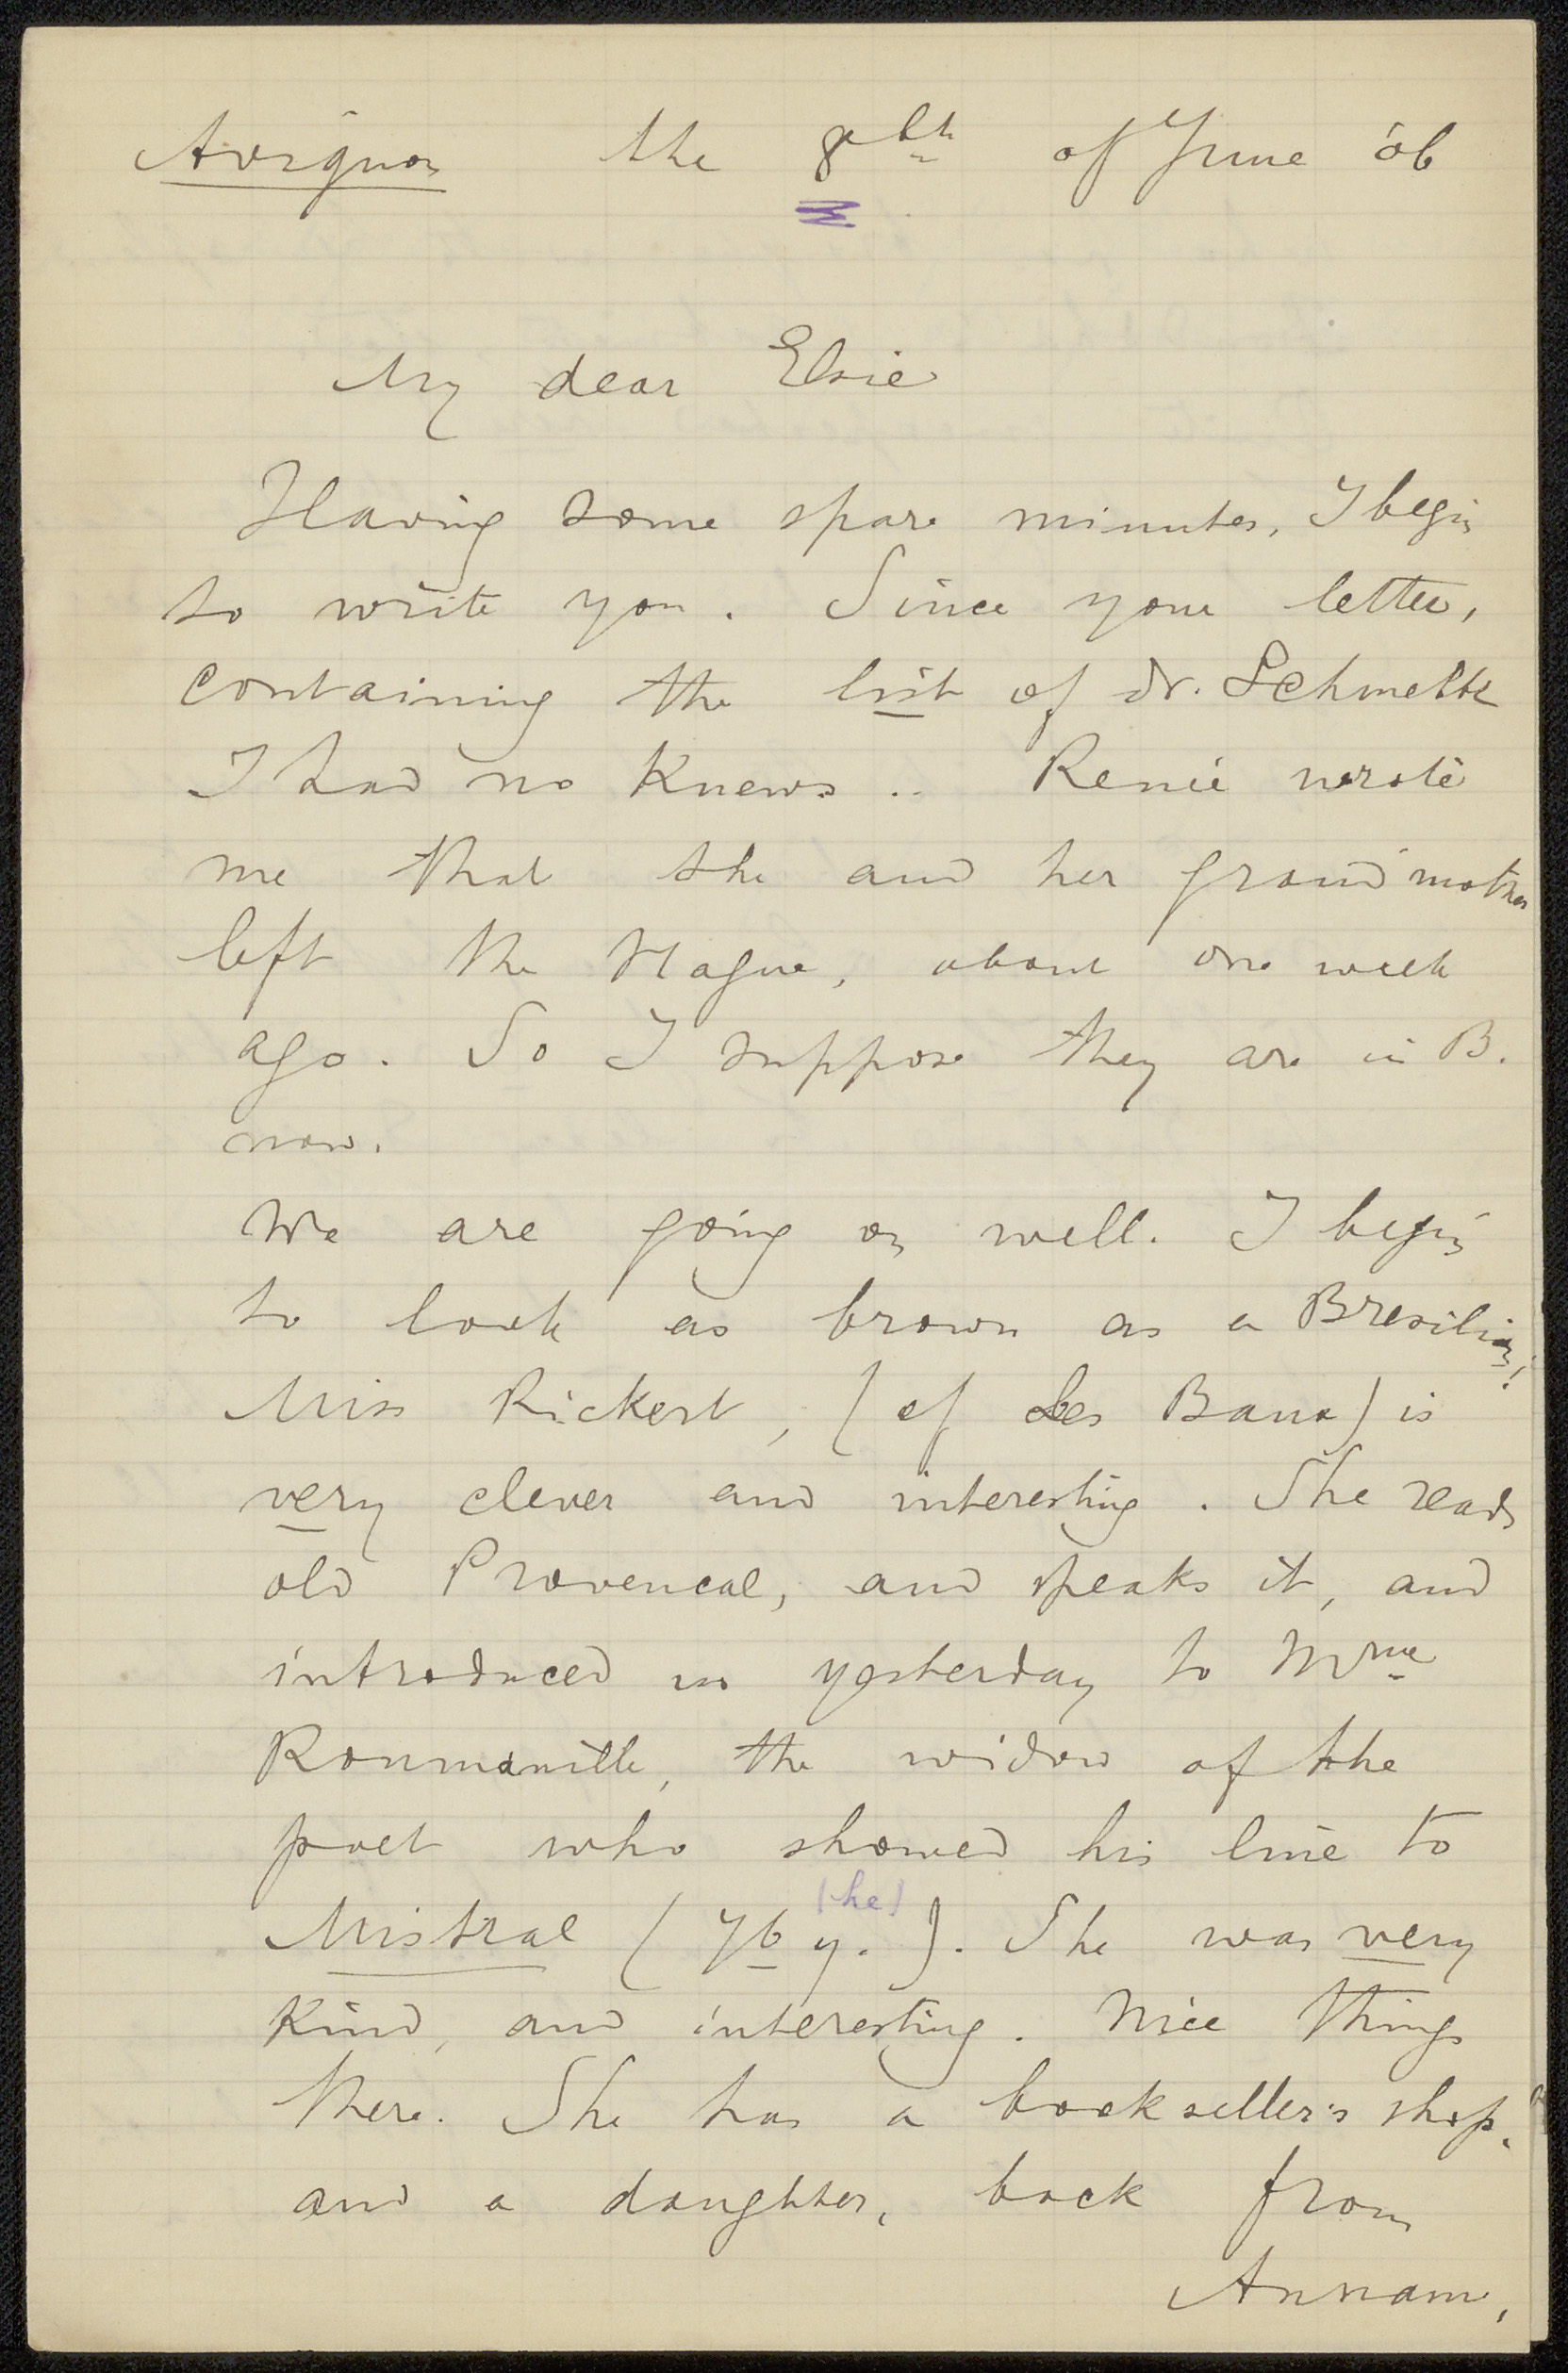 Avignon the 8th of June '06
My dear Elsie
Having some spare minutes, I begin
to write you. Since your letter,
containing the list of dr. Schmeltz
I had no Knews .. Renée wrote
me that she and her grandmother
left the Hague, about one week
ago. So I suppose they are in B.
now.
We are going on well. I begin
to look as brown as a Bresilian!
Miss Rickert, (of Les Baux) is
very clever and interesting. She reads
old Provencal, and speaks it, and
introduced us yesterday to Mme
Roumanille, the widow of the
poet who showed his line to
(he)
Mistral (76 y.). She was very
Kind, and interesting. Nice things
there. She has a bookseller's shop,
and a daughter, back from
Annam,